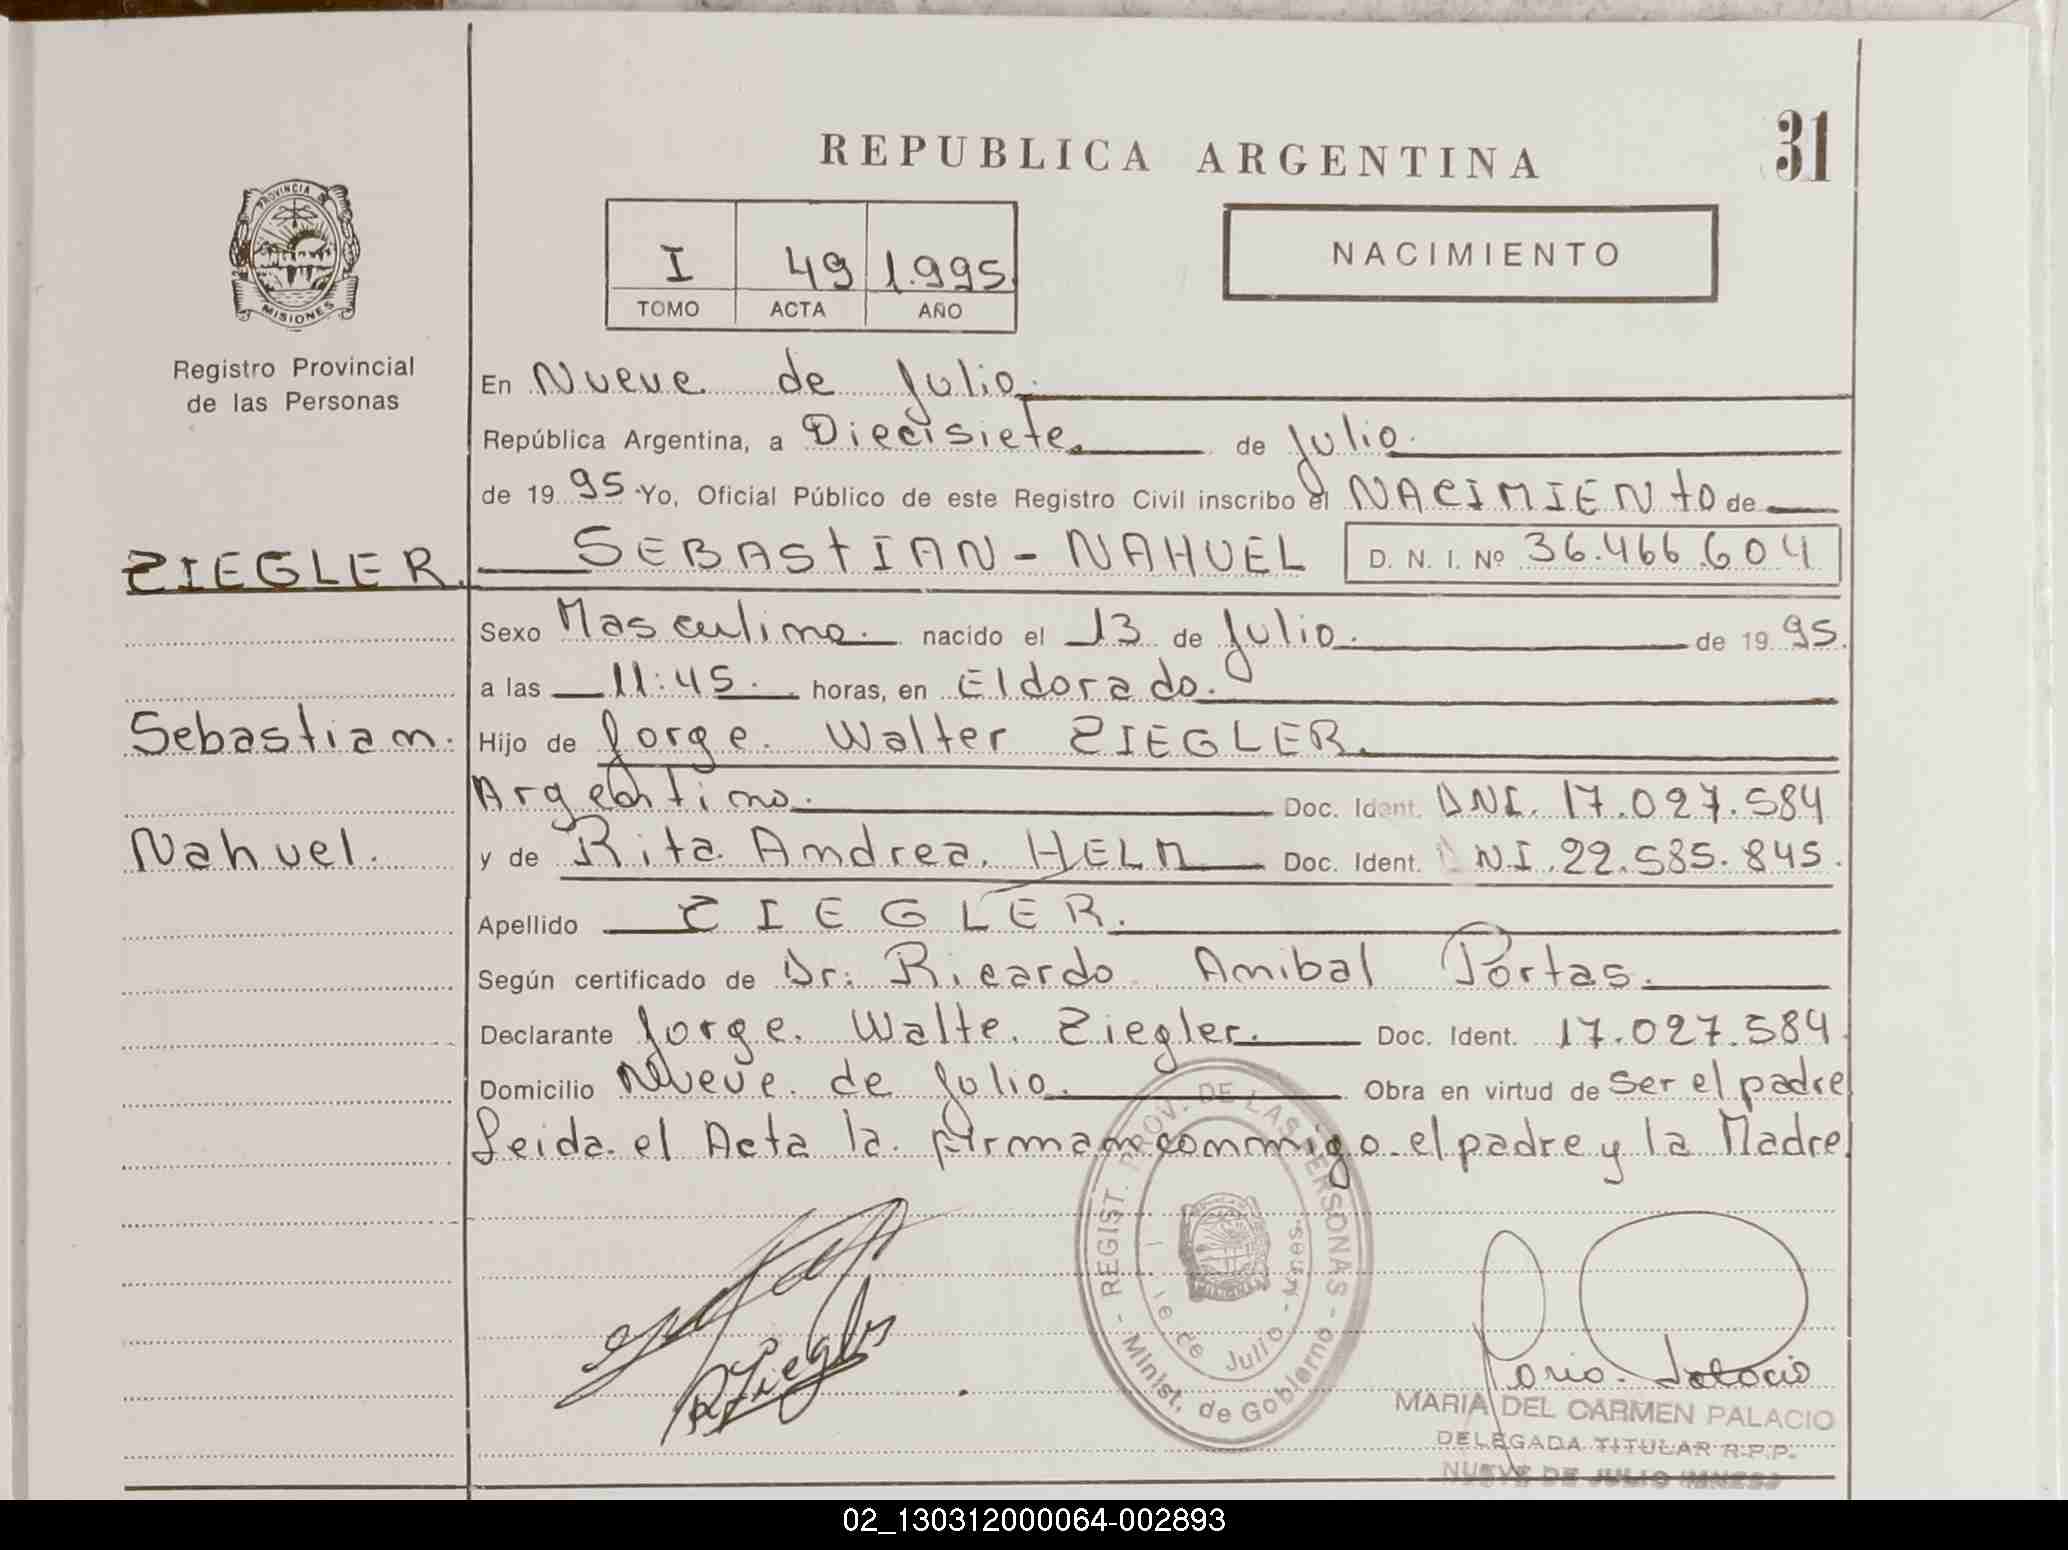 REPUBLICA ARGENTINA
31
PROVINCIA
MISIONES
Registro Provincial
de las Personas
I 49 1.995
TOMO ACTA AÑO
NACIMIENTO
En Nueve de Julio.
República Argentina, a Diecisiete. de Julio.
de 19 95 Yo, Oficial Público de este Registro Civil inscribo el NACIMIENTO de
ZIEGLER. SEBASTIAN - NAHUEL D. N. I. Nº 36.466.604
Sexo Masculino. nacido el 13 de Julio. de 19 95.
a las 11:45. horas, en Eldorado.
Sebastian. Hijo de Jorge. Walter ZIEGLER.
Argentino. Doc. Ident. DNI. 17.027.584
Nahuel. y de Rita Andrea. HELM Doc. Ident. DNI.22.585.845.
Apellido ZIEGLER.
Según certificado de Dr: Ricardo Anibal Portas.
Declarante Jorge. Walte. Ziegler. Doc. Ident. 17.027.584.
Domicilio Nueve. de Julio. Obra en virtud de Ser el padre
Leida el Acta la firman conmigo el padre y la Madre
REGIST. PROV. DE LAS PERSONAS - Minist. de Gobierno -
de Julio - Mnes.
R Ziegler
Maria Palacio
MARIA DEL CARMEN PALACIO
DELEGADA TITULAR R.P.P.
NUEVE DE JULIO (MNES)
02_130312000064-002893